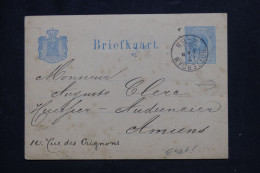 Briefkaart.
Monsieur
Auguste Clerc
Huissier-Audiencier
Amiens
10, Rue des Orignons